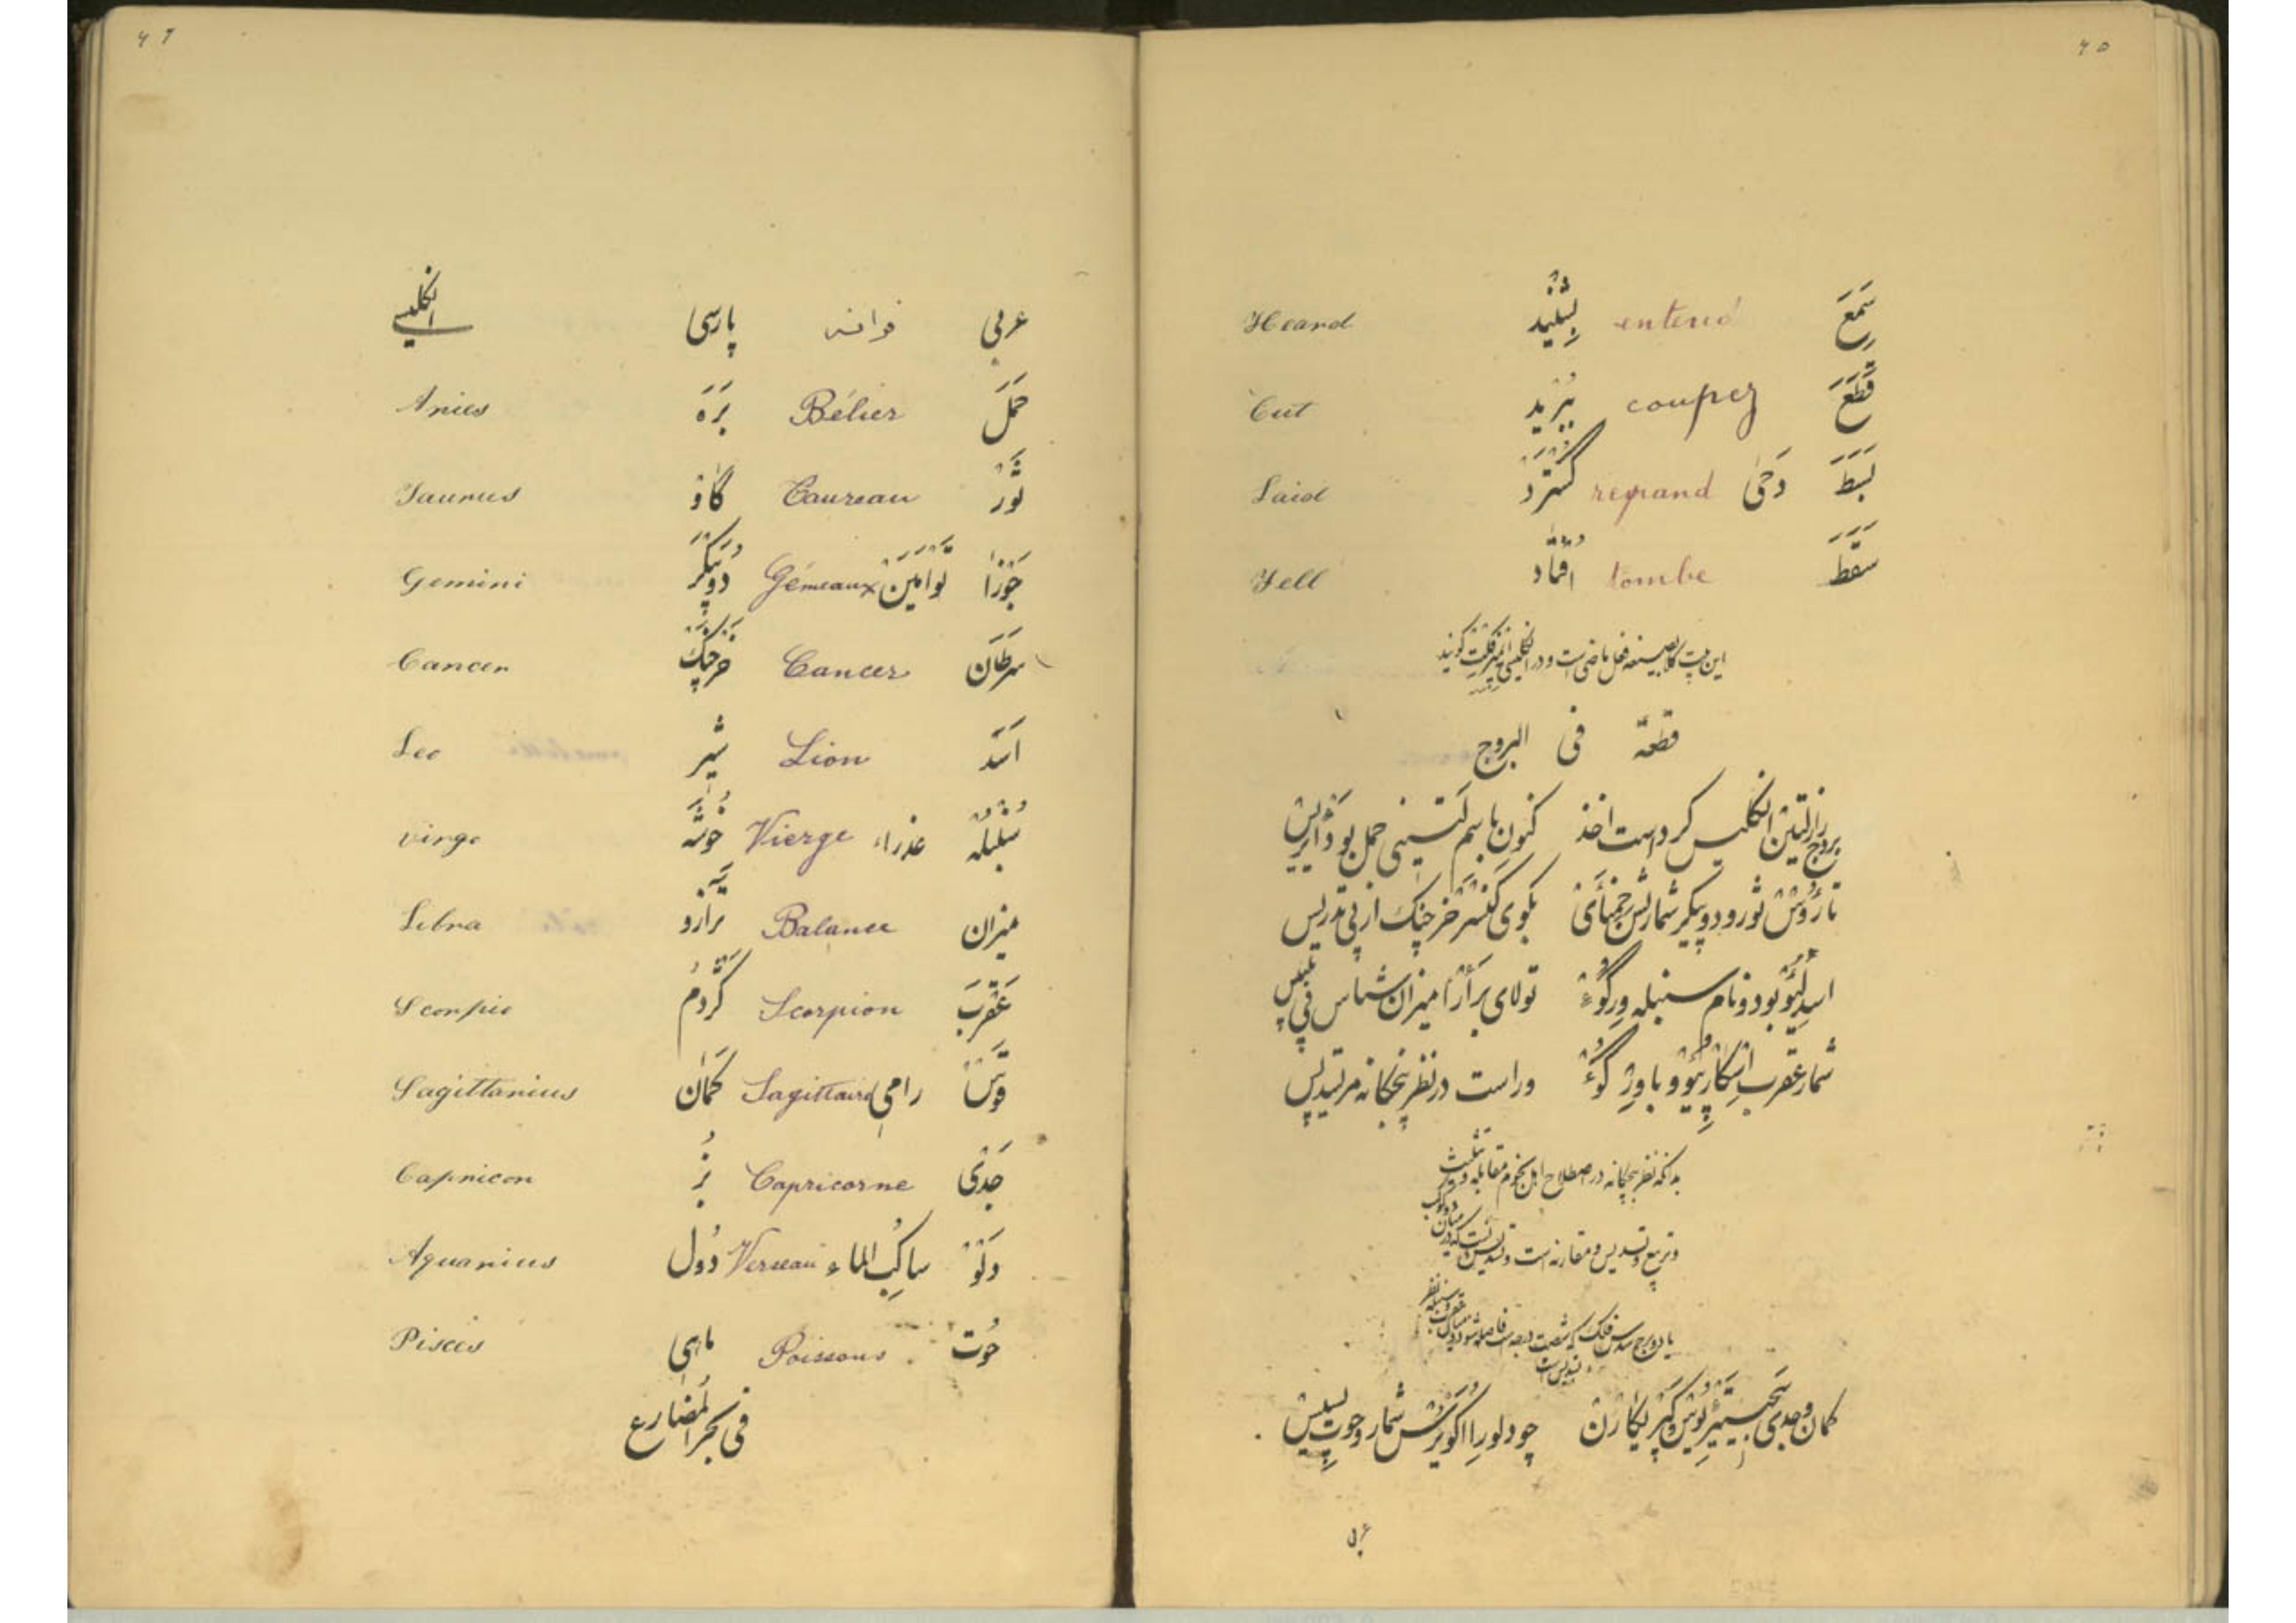 ۴۵
سَمِعَ entend بِشْنِید Heard
قَطَعَ coupez بُبْرید Cut
بَسَطَ دَحیٰ repand گُسْتَرْد Laid
سَقَطَ tombe اُفْتاد Fell
این بیت کلا بصیغه فعل ماضی است و در انگلیسی گویند
قطعة فی البروج
بروج را ز لتین انگلیس کرد است اخذ کنون باسم لتینی حمل بود اَریِیس
تارُوْس ثور و دوپیکر شمارش جِمْنَایْ بگوی کَنْسَرْ خرچنک از پی تدریس
اسد لِیَوْ بود و نام سنبله وِرگُوْ تو لای بَرَاْ را میزان شناس فی تلبیس
شمار عقرب اِسْکارْپِیُو و با وِرْگُوْ وراست در نظر پنجکانه مر تسدیس
بدانکه نظر پنجکانه در اصطلاح اهل نجوم مقابله و تثلیث
و تربیع و تسدیس و مقارنه است و تسدیس آنست که در میان دو کوکب
یا دو برج سدس فلک که شصت درجه است فاصله شود میان عقرب و سنبله نظر
تسدیس است
کمان و جدی سَجِیتِیرْیُوس و کَپْریکارْن چو دلو را اکویَرْیُس شمار و حوت پیسیس
عربی
۴۶
عربی فرانسه پارسی انگلیسی
حَمَلْ Bélier بَرَه Aries
ثَوْر Taureau گاوْ Taurus
جَوْزا تَوْاَمَیْن Gémeaux دُوپَیْکَر Gemini
سَرَطان Cancer خَرْچَنْک Cancer
اَسَدْ Lion شیر Leo
سُنْبُلَه عذراء Vierge خُوشَه virgo
میزان Balance تَرازو Libra
عَقْرَبَ Scorpion گَژْدُمْ Scorpio
قَوْسْ رامی Sagittaire کَمان Sagittarius
جَدْی Capricorne بُز Capricon
دَلْوْ ساکِبُ الماء Verseau دُول Aquarius
حُوت Poissons ماهی Pisces
فی بحر المُضارع